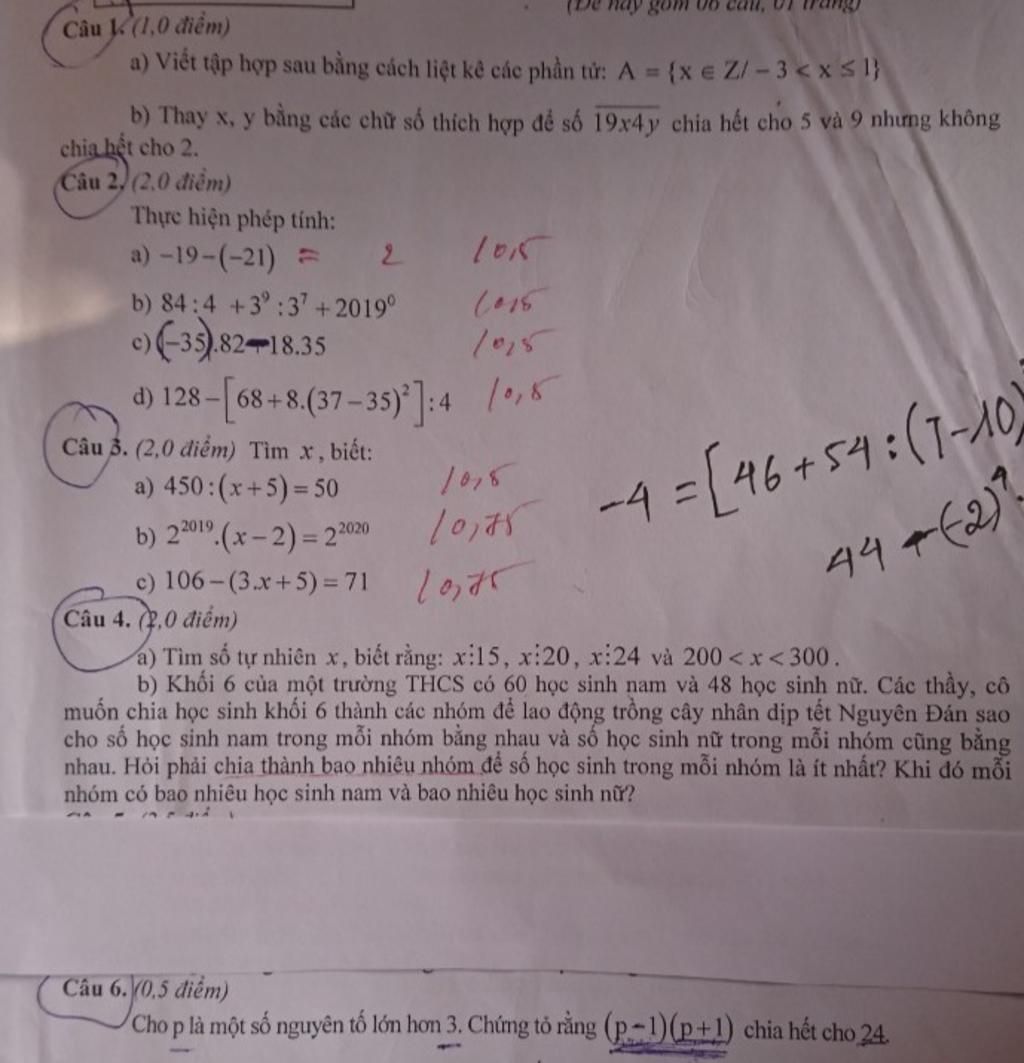 (Đề này gồm 06 câu, 01 trang)
Câu 1. (1,0 điểm)
a) Viết tập hợp sau bằng cách liệt kê các phần tử: A = {x ∈ Z/ − 3 < x ≤ 1}
b) Thay x, y bằng các chữ số thích hợp để số \overline{19x4y} chia hết cho 5 và 9 nhưng không
chia hết cho 2.
Câu 2. (2,0 điểm)
Thực hiện phép tính:
a) −19−(−21) = 2 /0,5
b) 84:4 +3⁹:3⁷+2019⁰ /0,5
c) (−35).82−18.35 /0,5
d) 128−[68+8.(37−35)²]:4 /0,5
Câu 3. (2,0 điểm) Tìm x, biết:
a) 450:(x+5)=50 /0,5
−4 = [46+54:(7−10)
b) 2²⁰¹⁹.(x−2)=2²⁰²⁰ /0,75
c) 106−(3.x+5)=71 /0,75
Câu 4. (2,0 điểm)
a) Tìm số tự nhiên x, biết rằng: x⋮15, x⋮20, x⋮24 và 200<x<300.
b) Khối 6 của một trường THCS có 60 học sinh nam và 48 học sinh nữ. Các thầy, cô
muốn chia học sinh khối 6 thành các nhóm để lao động trồng cây nhân dịp tết Nguyên Đán sao
cho số học sinh nam trong mỗi nhóm bằng nhau và số học sinh nữ trong mỗi nhóm cũng bằng
nhau. Hỏi phải chia thành bao nhiêu nhóm để số học sinh trong mỗi nhóm là ít nhất? Khi đó mỗi
nhóm có bao nhiêu học sinh nam và bao nhiêu học sinh nữ?
Câu 6. (0,5 điểm)
Cho p là một số nguyên tố lớn hơn 3. Chứng tỏ rằng (p−1)(p+1) chia hết cho 24.